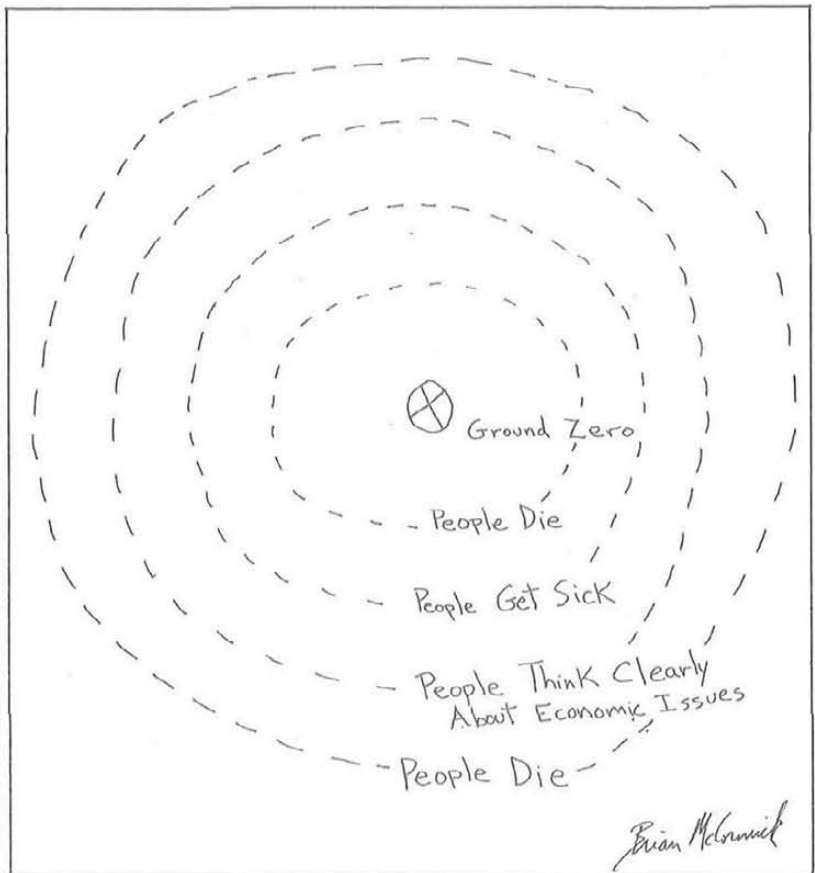 Ground Zero
People Die
People Get Sick
People Think Clearly
About Economic Issues
People Die
Brian McCormick